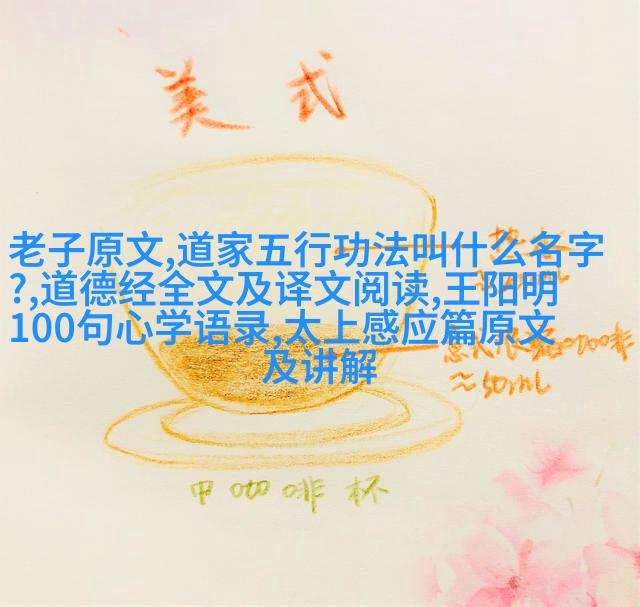 美式
老子原文,道家五行功法叫什么名字
?,道德经全文及译文阅读,王阳明
100句心学语录,太上感应篇原文
及讲解
≈50mL
中咖啡杯